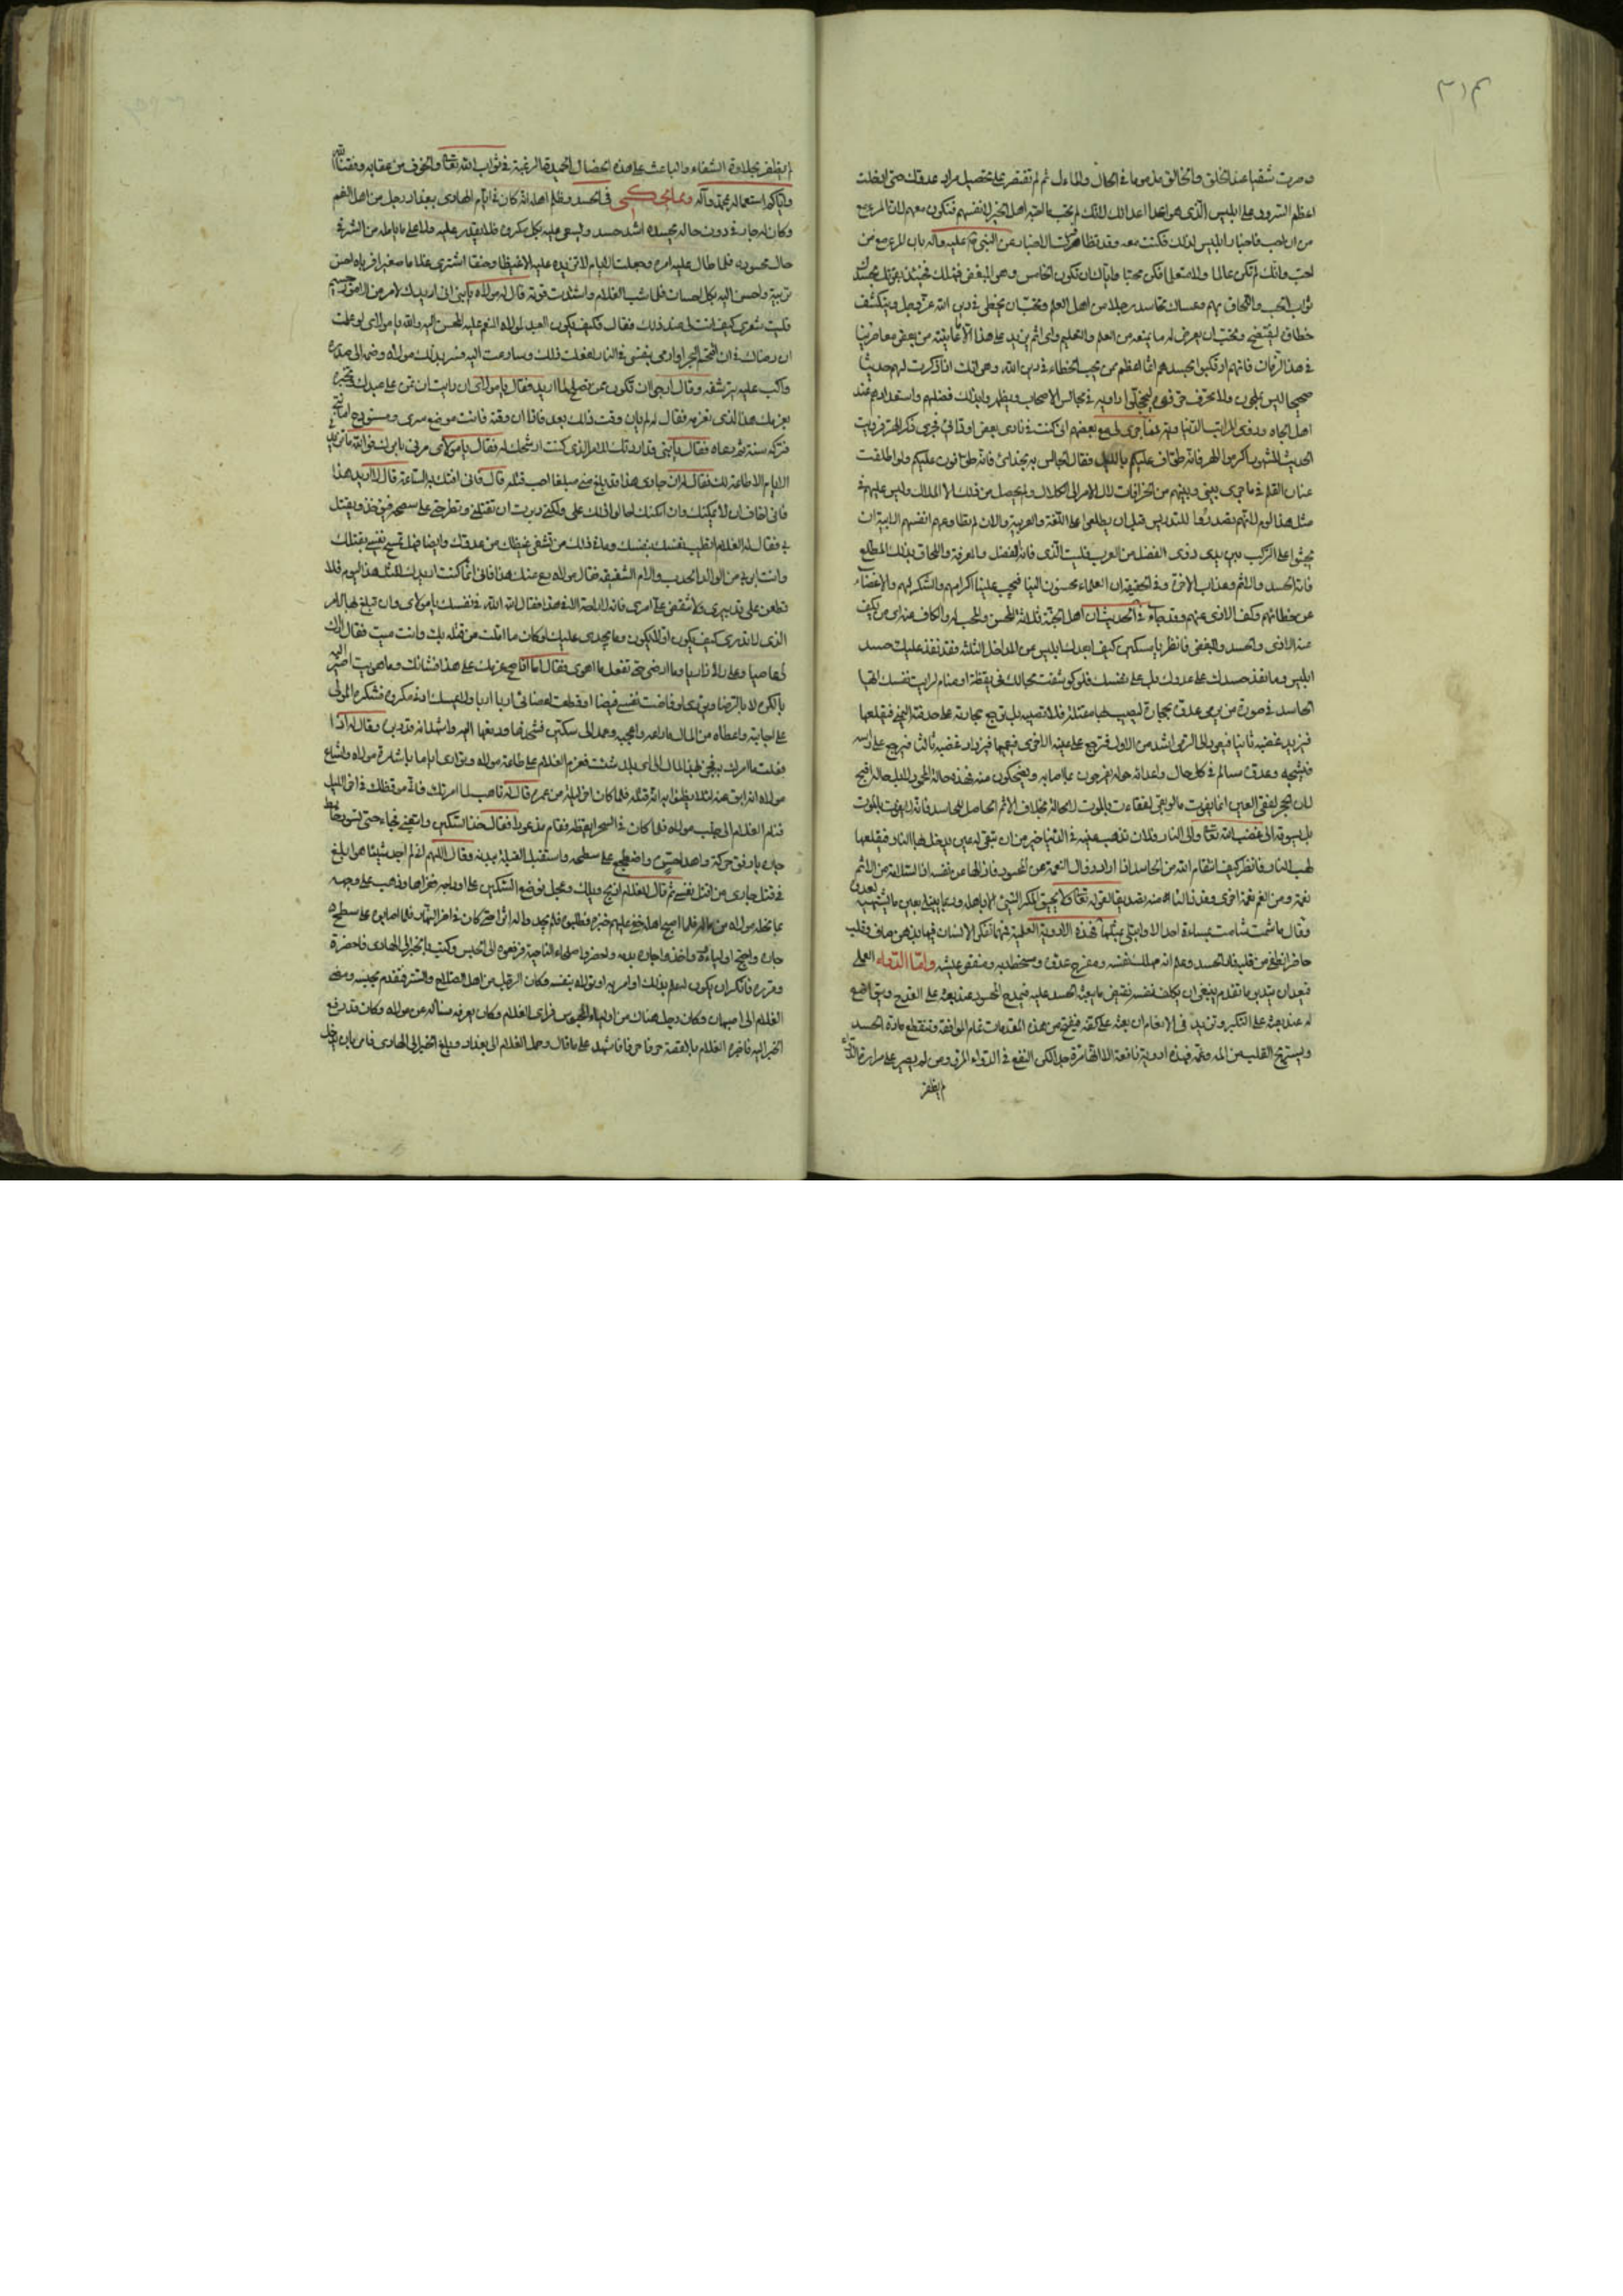 ٣١٣
وصرت شقيا عند الخلق والخالق مذموما في الحال والمآل ثم لم تقتصر على تحصيل مراد عدوك حتى ادخلت
اعظم السرور على ابليس الذي هو اعدا اعدائك لانك لم تحب ما احبه اهل الخير لانفسهم فتكون معهم لان المرء مع
من احب فاحبار ابليس لذلك فكنت معه وقد تظاهرت الاخبار عن النبي صلى الله عليه وآله بان المرء مع من
احب وانك لم تكن عالما ولا متعلما فكن محبا واياك ان تكون الخامس وهو المبغض فتهلك فحينئذ يفوتك بحسدك
ثواب الحب واللحاق بهم وعساك تحاسد رجلا من اهل العلم وتحب ان يخطى في دين الله عز وجل وينكشف
خطاؤه ليفتضح وتحب ان يعرض له ما يمنعه من العلم والتعليم واي اثم يزيد على هذا الا ما عاينته من بعض معاصرينا
في هذا الزمان فانهم اذ يحسدهم اثما اعظم ممن يحب الخطاء في دين الله وهو انك اذا ذكرت لهم حديثا
صحيحا ليس بملحون ولا محرف في مجالس الاصحاب ويظهر بذلك فضلهم واستعدادهم عند
اهل الجاه وذوي المراتب الدنياوية مع بعضهم اني كنت في نادي بعض اوقاتي فجرى ذكر الهر فرويت
الحديث المشهور اكرموا الهر فانه طواف عليكم بالليل فقال المجالس به
عنان القلم في ما جرى بيني وبينهم من الخرافات لال الامر الى الكلال ولم يحصل من ذلك الا الملال وليس عليهم في
مثل هذا لوم لانهم تصدروا للتدريس قبل ان يطلعوا على اللغة والعربية والان لم تطاوعهم انفسهم الابية ان
يجثوا على الركب بين يدي ذوي الفضل من العرب فليت الذي فاته الفضل والمعرفة واللحاق بذلك المطلع
فاته الحسد والاثم وعذاب الاخرة وفي الحقيقة ان العلماء محسنون الينا فيجب علينا اكرامهم والشكر لهم والاغضاء
عن خطائهم وكف الاذى عنهم وقد جاء في الحديث ان اهل الجنة ثلاثة المحسن والمحب له والكاف عنه اي من يكف
عنه الاذى والحسد والبغض فانظر يا مسكين كيف ابعدك ابليس من المداخل الثلثة فقد نفذ عليك حسد
ابليس وما نفذ حسدك على عدوك بل على نفسك فلو كوشفت بحالك في يقظة او منام لرايت نفسك ايها
الحاسد في صورة من يرمي عدوه بحجارة ليصيب بها مقتله فلا تصيبه بل ترجع حجارته على حدقته اليمنى فيقلعها
فيزيد غضبه ثانيا فيعود الى الرمي اشد من الاول فترجع على عينه الاخرى فيعميها فيزداد غضبه ثالثا فيرجع على راسه
فيشجه وعدوه سالم في كل حال واعدائه حوله يفرحون بما اصابه ويضحكون منه فهذه حالة المحسود بل حاله اقبح
لان الحجر لفقئ العين انما يفوت ما لو بقي لفاته بالموت لا محالة بخلاف الاثم الحاصل للحاسد فانه لا يفوت بالموت
بل يسوقه الى غضب الله تعالى والى النار فلان تذهب عينه في الدنيا خير من ان تبقى له عين يدخل بها النار فيقلعها
لهب النار فانظر كيف انتقام الله من الحاسد اذا اراد زوال النعمة عن المحسود فازالها عن نفسه اذ السلامة من الاثم
نعمة ومن الغم نعمة اخرى وقد زالتا عنه تصديقا لقوله تعالى ولا يحيق المكر السيئ الا باهله وربما يبتلى بعين ما يشتهيه لعدوه
وقال ما شمت شامت بمساءة احد الا وابتلي بمثلها فهذه الادوية العلمية فمهما تفكر الانسان فيها بذهن صاف وقلب
حاضر انطفى من قلبه نار الحسد وعلم انه مهلك نفسه ومفرح عدوه ومسخط ربه ومنغص عيشه واما الدواء العملي
فبعد ان يتدبر ما تقدم ينبغي ان يكلف نفسه نقيض ما يبعثه الحسد عليه فيمدح المحسود عند بعثه على القدح ويتواضع
له عند بعثه على التكبر ويزيد في الانعام ان بعثه على كفه فينتج من هذه المقدمات تمام الموافقة وتنقطع مادة الحسد
ويستريح القلب من المه وغمه فهذه ادوية نافعة الا انها مرة جدا لكن النفع في الدواء المر ومن لم يصبر على مرارة الدواء
لم يظفر
لم يظفر بحلاوة الشفاء والباعث على هذه الخصال الحميدة الرغبة في ثواب الله تعالى والخوف من عقابه وفقنا الله
واياكم لاستعماله بمحمد وآله ومما يحكى في الحسد وظلم اهله انه كان في ايام الهادي ببغداد رجل من اهل النعم
وكان له جار في دون حاله يحسده اشد حسد ويسعى عليه بكل مكروه فلا يقدر عليه ولا على ما يامله من الشر في
حال محسوده فلما طال عليه امره وجعلت الايام لا تزيده عليه الا غيظا وحنقا اشترى غلاما صغيرا فرباه احسن
تربية واحسن اليه بكل احسان فلما شب الغلام واشتدت قوته قال له مولاه يا بني اني اريدك لامر من الامور جسيم
فليت شعري كيف انت لي عند ذلك فقال فكيف يكون العبد لمولاه المنعم عليه المحسن اليه والله يا مولاي لو علمت
ان رضاك في ان اقتحم البحر او ارمي بنفسي في النار لفعلت ذلك وسارعت اليه فسر بذلك مولاه وضمه الى صدره
واكب عليه يترشفه وقال ارجو ان تكون ممن يصلح لما اريد فقال يا مولاي ان رايت ان تمن على عبدك فتخبره
بعزمك هذا الذي تعزمه فقال له لم يان وقت ذلك بعد فاذا ان وقته فانت موضع سري ومستودع امانتي
فتركه سنة ثم دعاه فقال يا بني قد اردتك للامر الذي كنت ارشحك له فقال يا مولاي مرني بامرك فوالله ما تزيدني
الايام الا طاعة لك فقال له ان جاري هذا قد بلغ مني مبلغا احب قتله قال فاني افتك به الساعة قال لا اريد هذا
فاني اخاف ان لا يمكنك وان امكنك احالوا ذلك علي ولكني دبرت ان تقتلني وتطرحني على سطحه فيؤخذ ويقتل
بي فقال له الغلام اتطيب نفسك بنفسك وما في ذلك من تشفي غيظك من عدوك وايضا فهل تسمح نفسي بقتلك
وانت ابر بي من الوالد الحدب والام الشفيقة فقال مولاه دع عنك هذا فاني انما كنت اربيك لمثل هذا اليوم فلا
تطعن على تدبيري ولا تنقض علي امري فانه لا راحة الا في هذا فقال الله الله في نفسك يا مولاي وان تبلغ بها للامر
الذي لا تدري كيف يكون او لا يكون وما يجدي عليك لو كان ما املت من قتله بك وانت ميت فقال اراك
لي عاصيا وما ارضى حتى تفعل ما اهوى فقال اما اذا صح عزمك على هذا فشانك وما هويت اصير اليه
بالكره لا بالرضا
على اجابته واعطاه من المال ما ارضاه واعجبه وعمد الى سكين فشحذها ودفعها اليه واشهد انه قد دبره وقال له اذا
فعلت ما امرك به فخذ هذا المال الى اي بلد شئت فعزم الغلام على طاعة مولاه وتوارى اياما باشارة مولاه واشاع
مولاه انه ابق عنه لئلا يظنوا به انه قتله فلما كان اخر ليلة من عمره قال له تاهب لما امرتك فاني موقظك في اخر الليل
فنام الغلام الى جنب مولاه فلما كان في السحر ايقظه فقام مذعورا فقال خذ السكين واتبعني فجاء حتى تسور حائط
جاره بارفق حركة واهدا حس واضطجع على سطحه واستقبل القبلة ببدنه وقال اللهم اني لم اجد شيئا هو ابلغ
في قتل جاري من اقتل نفسي ثم قال للغلام اذبح ويلك وعجل فوضع السكين على اوداجه فذبحها وذهب على وجهه
بما نحله مولاه من المال فلما اصبح اهله خفي عليهم خبره فطلبوه فلم يجدوا له اثرا حتى كان في اخر النهار فلما اصابوه على سطح
جاره واخذوا جاره به واحضروا صلحاء الناحية فرفعوه الى الحبس وكتب بالخبر الى الهادي فاحضره
وقرره فانكر ان يكون له علم بذلك او امر به او تولاه بنفسه وكان الرجل من اهل الصلاح والستر فتقدم بحبسه ومضى
الغلام الى اصبهان وكان رجل هناك من اولياء المحبوس فراى الغلام وكان يعرفه فساله عن مولاه وكان قد رفع
الخبر اليه فاخبره الغلام بالقصة حرفا حرفا فاشهد على ما قال وحمل الغلام الى بغداد وبلغ الخبر الى الهادي فامر بان